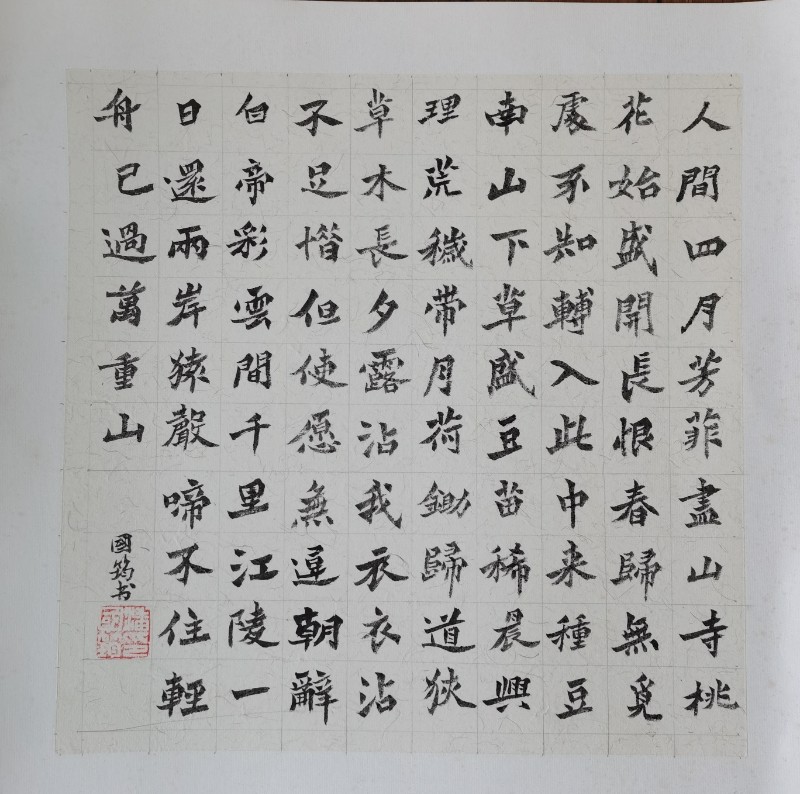 人間四月芳菲盡山寺桃
花始盛開長恨春歸無覓
處不知轉入此中来種豆
南山下草盛豆苗稀晨興
理荒穢带月荷鋤歸道狹
草木長夕露沾我衣衣沾
不足惜但使愿無違朝辭
白帝彩雲間千里江陵一
日還兩岸猿聲啼不住輕
舟已過萬重山
國筠书